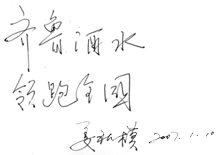 齐鲁酒水
领跑全国
姜祖模 2007.1.10